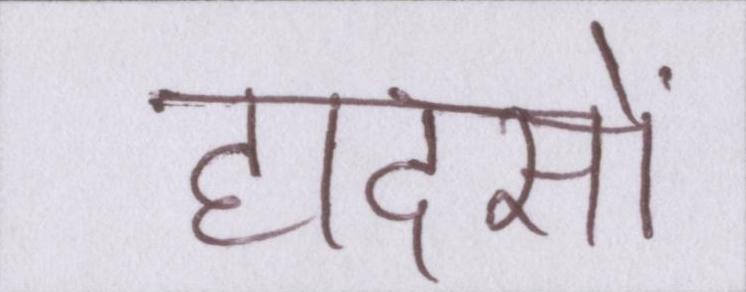 हादसों